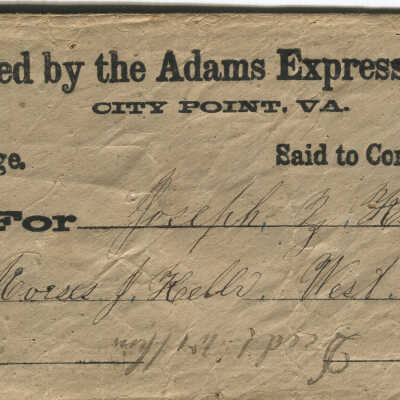 ed by the Adams Express
CITY POINT, VA.
ge. Said to Con
For Joseph
J. Kelly. West.